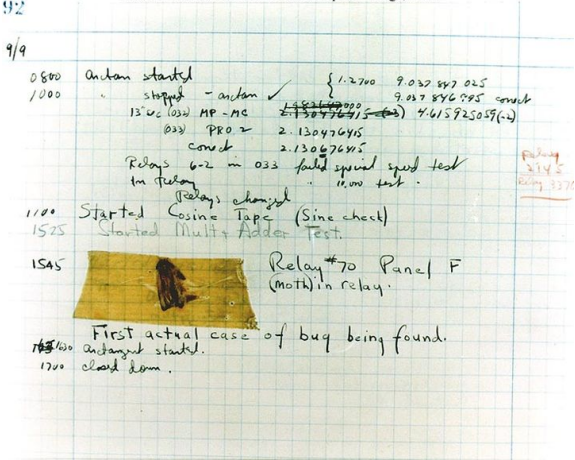 92
9/9
0800 Antan started { 1.2700 9.037 847 025
1000 " stopped - antan ✓ 9.037 846 995 correct
13" uc (033) MP - MC 2.130476415 4.615925059(-2)
(033) PRO 2 2.130476415
correct 2.130676415
Relays 6-2 in 033 failed special speed test
In Relay " 10,000 test.
Relays changed
Relay
2145
Relay 3370
1100 Started Cosine Tape (Sine check)
1525 Started Mult + Adder Test.
1545 Relay #70 Panel F
(Moth) in relay.
First actual case of bug being found.
1630 antangent started.
1700 closed down.